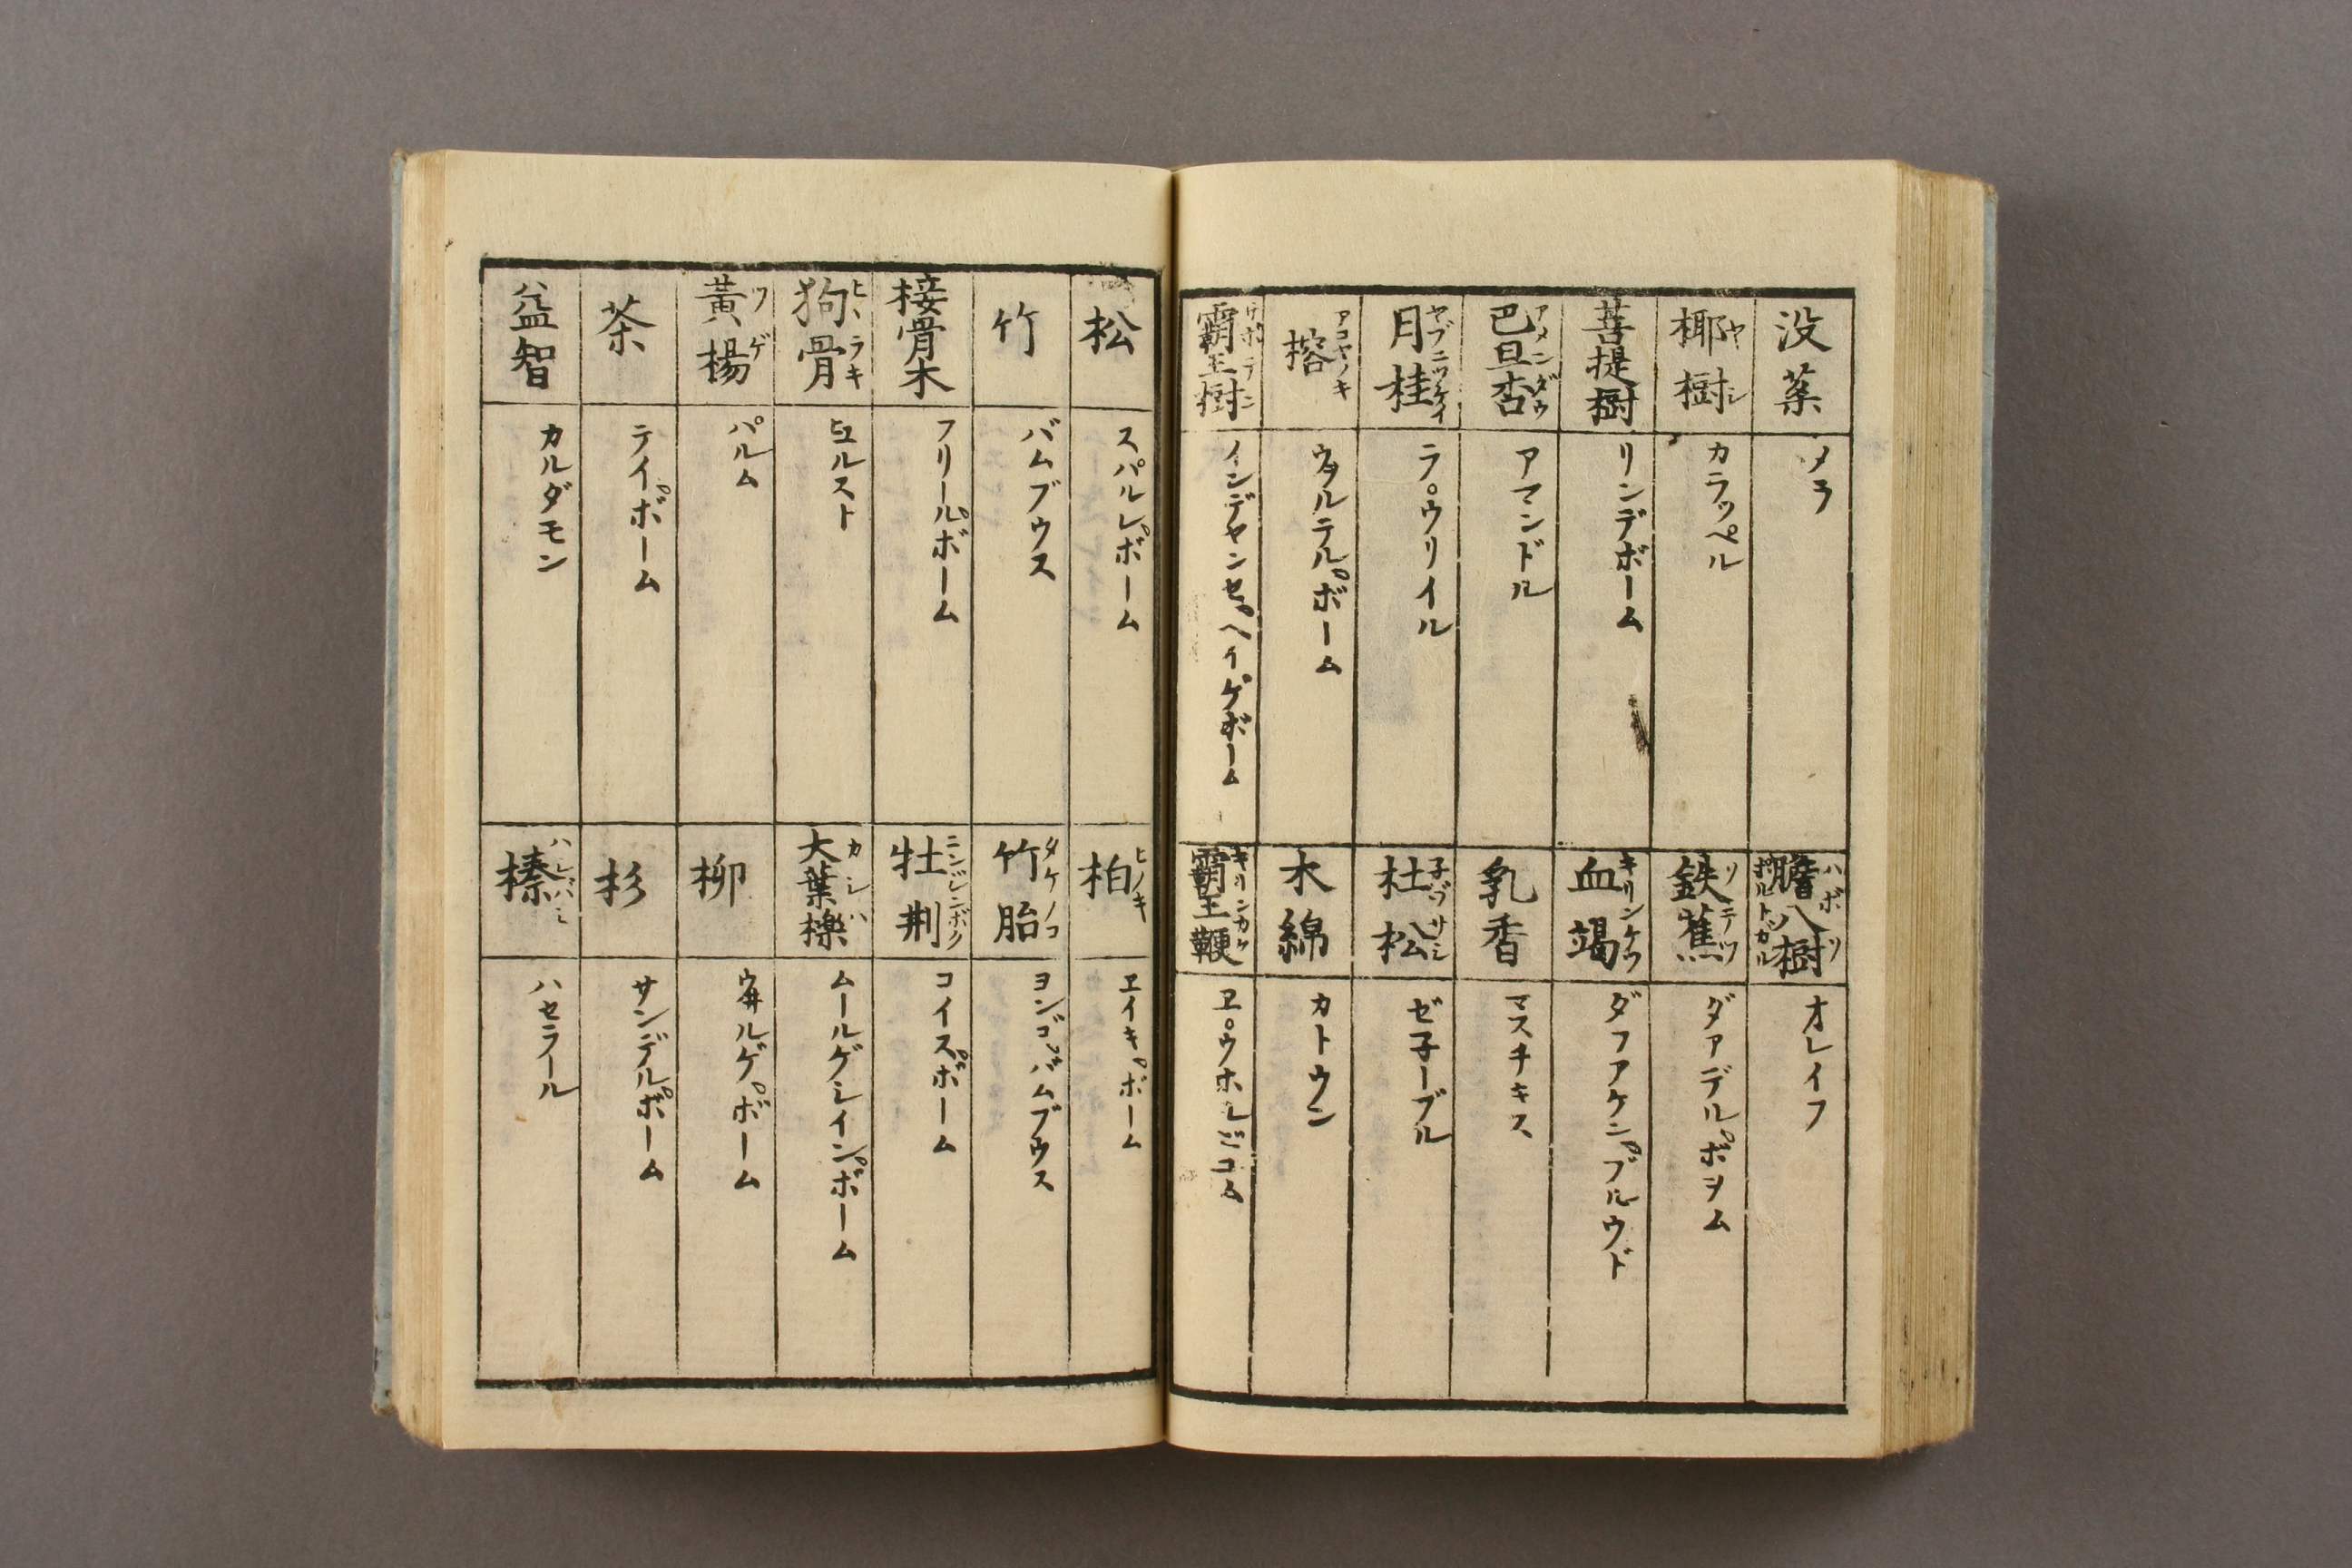 没薬
メラ
膽八樹 ハボソ ポルトカル
オレイフ
椰樹 ヤシ
カラッペル
鉄蕉 ソテツ
ダァデルボヲム
菩提樹
リンデボーム
血竭 キリンケツ
ダラアケンブルウド
巴旦杏 アメンダウ
アマンドル
乳香
マスチキス
月桂 ヤブニツケイ
ラウリイル
杜松 子ブサシ
ゼ子ーブル
榕 アコヤノキ
ウァルテルボーム
木綿
カトウン
覇王樹 サボテン
インデヤンセヘイゲボーム
覇王鞭 キリンカク
松
スパルレボーム
柏 ヒノキ
ヱイキボーム
竹
バムブウス
竹胎 タケノコ
ヨンゴバムブウス
接骨木
フリールボーム
牡荊 ニンジンボク
コイスボーム
狗骨 ヒヽラキ
ヒユルスト
大葉櫟 カシハ
ムールゲレインボーム
黄楊 ツゲ
パルム
柳
ウヰルゲボーム
茶
テイボーム
杉
サンデルボーム
益智
カルダモン
榛 ハシバミ
ハセラール